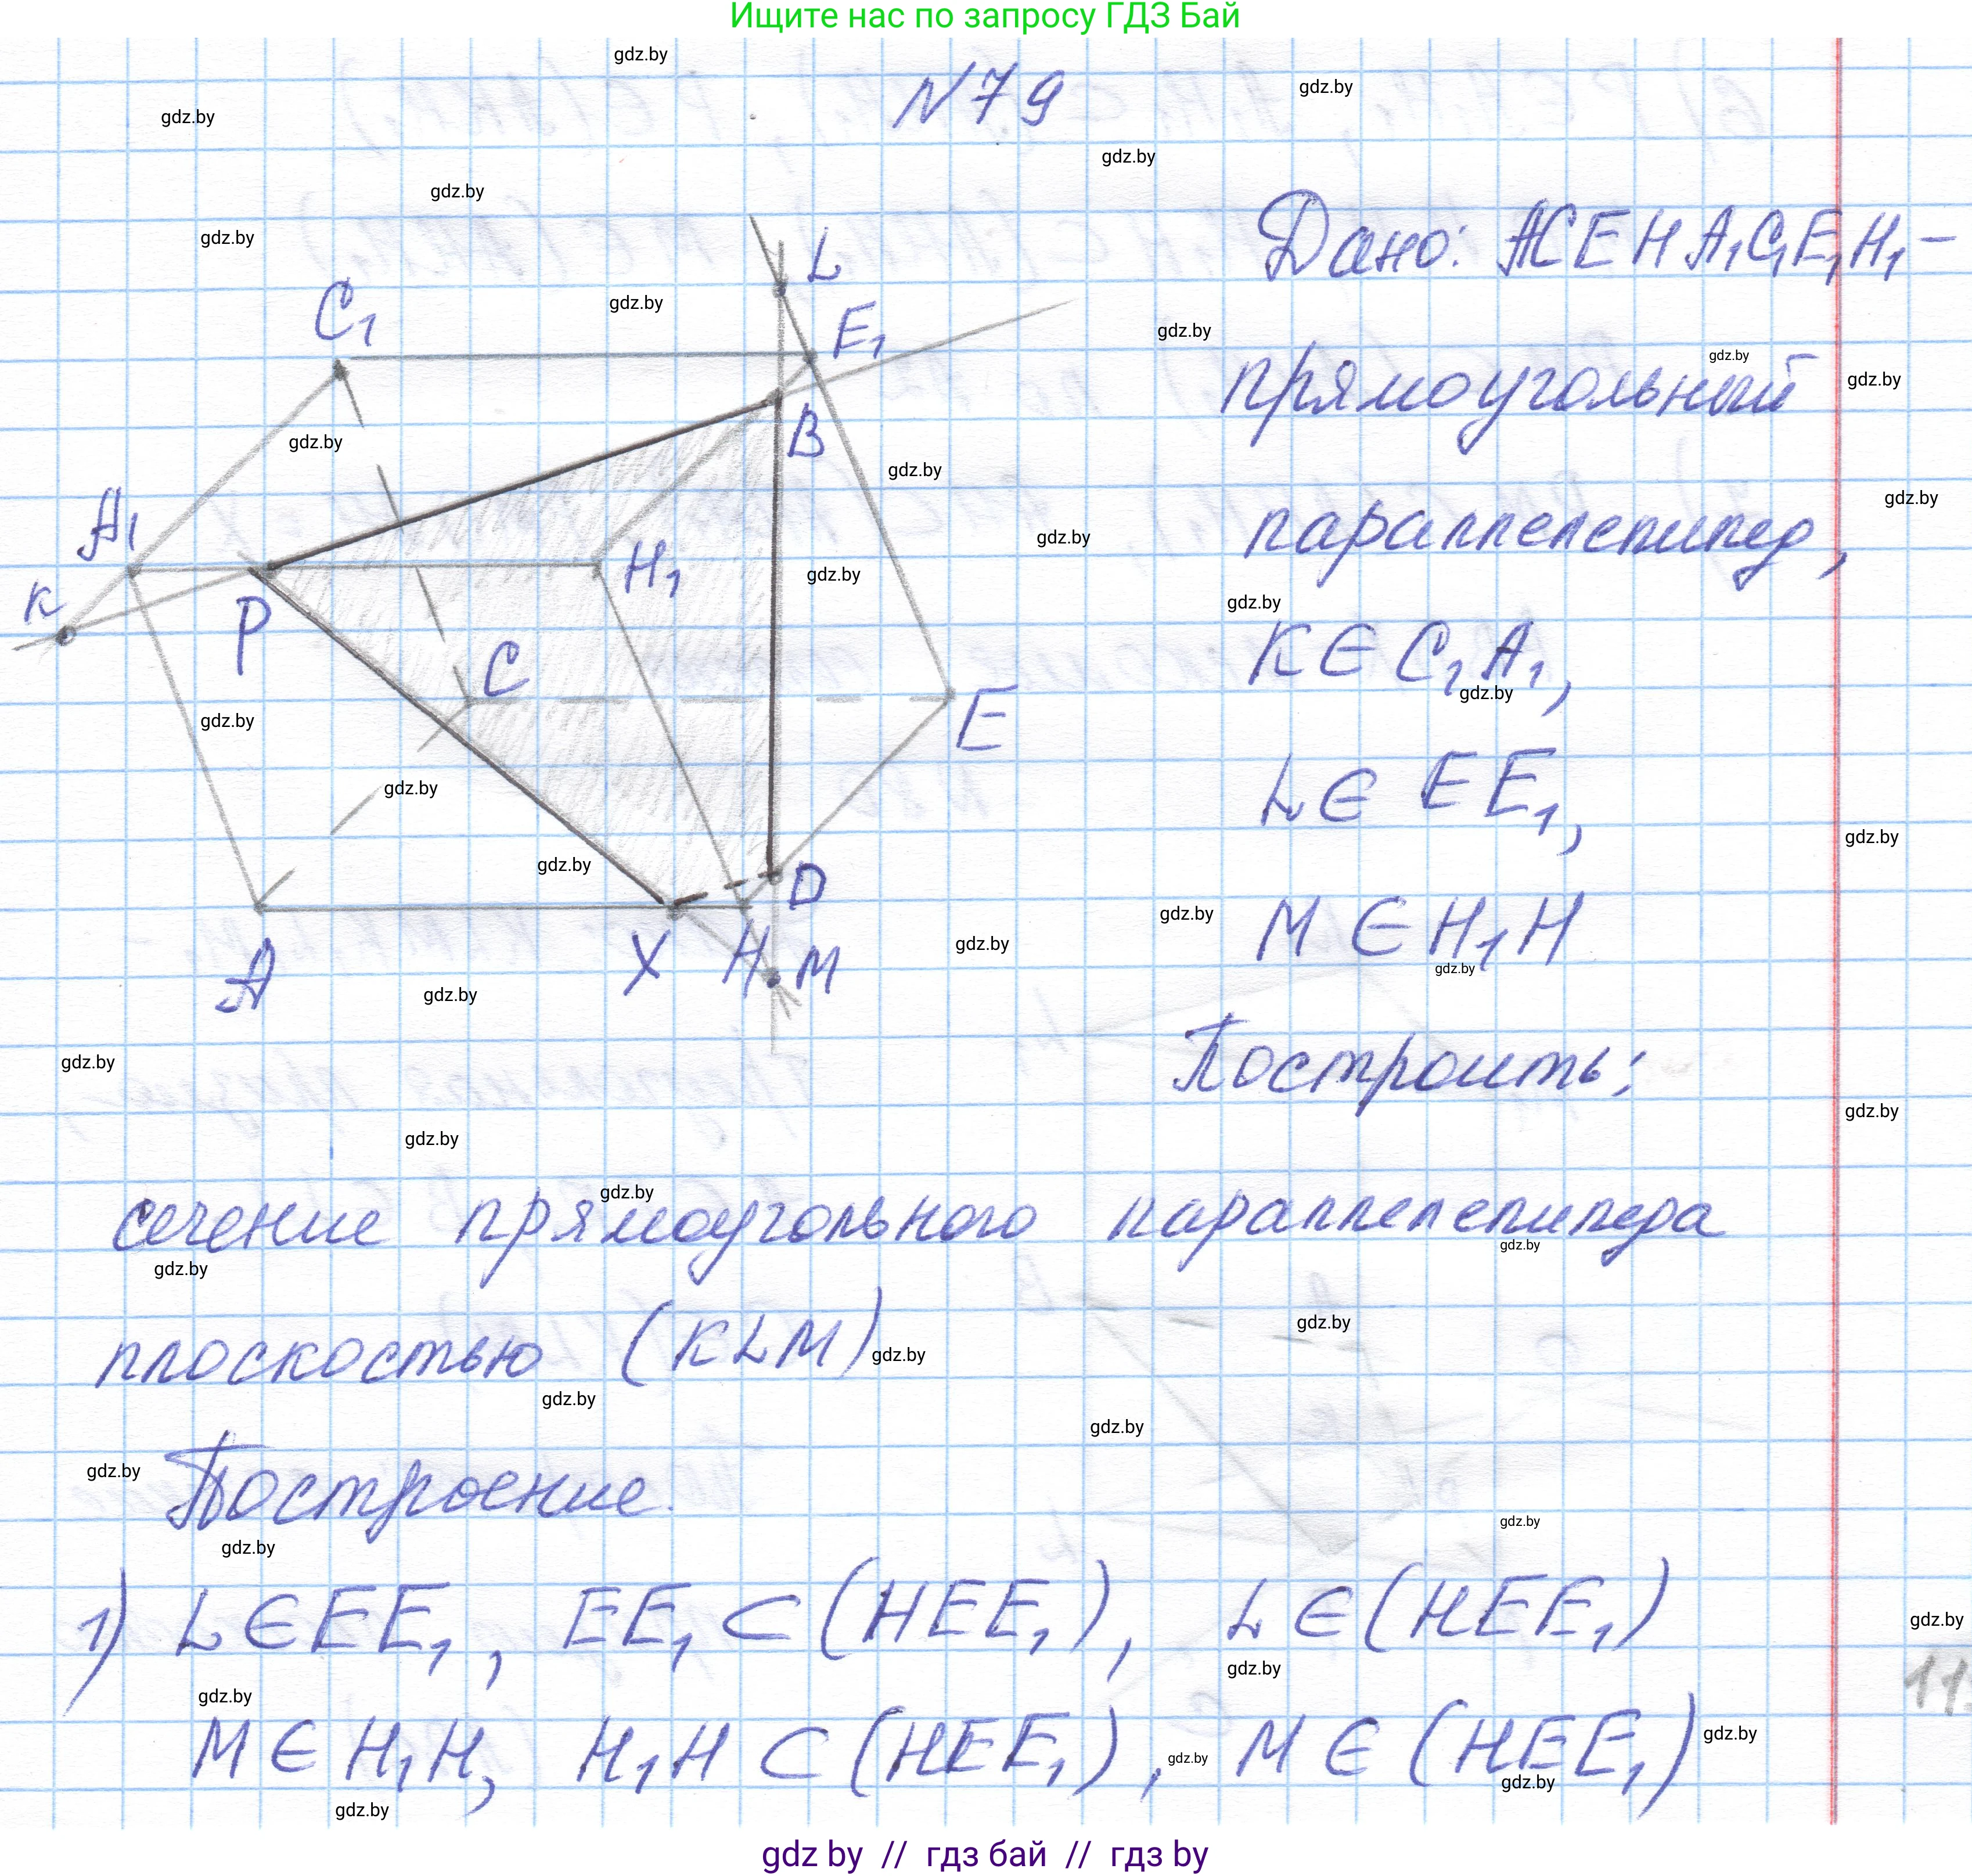 Ищите нас по запросу ГДЗ Бай
N79
Дано: ACEHA₁C₁E₁H₁ –
прямоугольный
параллелепипед,
K ∈ C₁A₁,
L ∈ EE₁,
M ∈ H₁H
Построить:
сечение прямоугольного параллелепипеда
плоскостью (KLM)
Построение.
1) L ∈ EE₁, EE₁ ⊂ (HEE₁), L ∈ (HEE₁)
M ∈ H₁H, H₁H ⊂ (HEE₁), M ∈ (HEE₁)
L
C₁
E₁
B
A₁
H₁
K
P
C
E
D
A
X
H
M
gdz.by
gdz by // гдз бай // гдз by